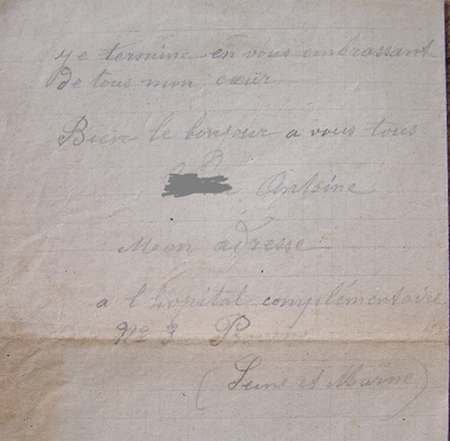 je termine en vous embrassant
de tous mon cœur
Bien le bonjour a vous tous
Antoine
Mon adresse
a l hopital complémentaire
No 3
(Seine et Marne)